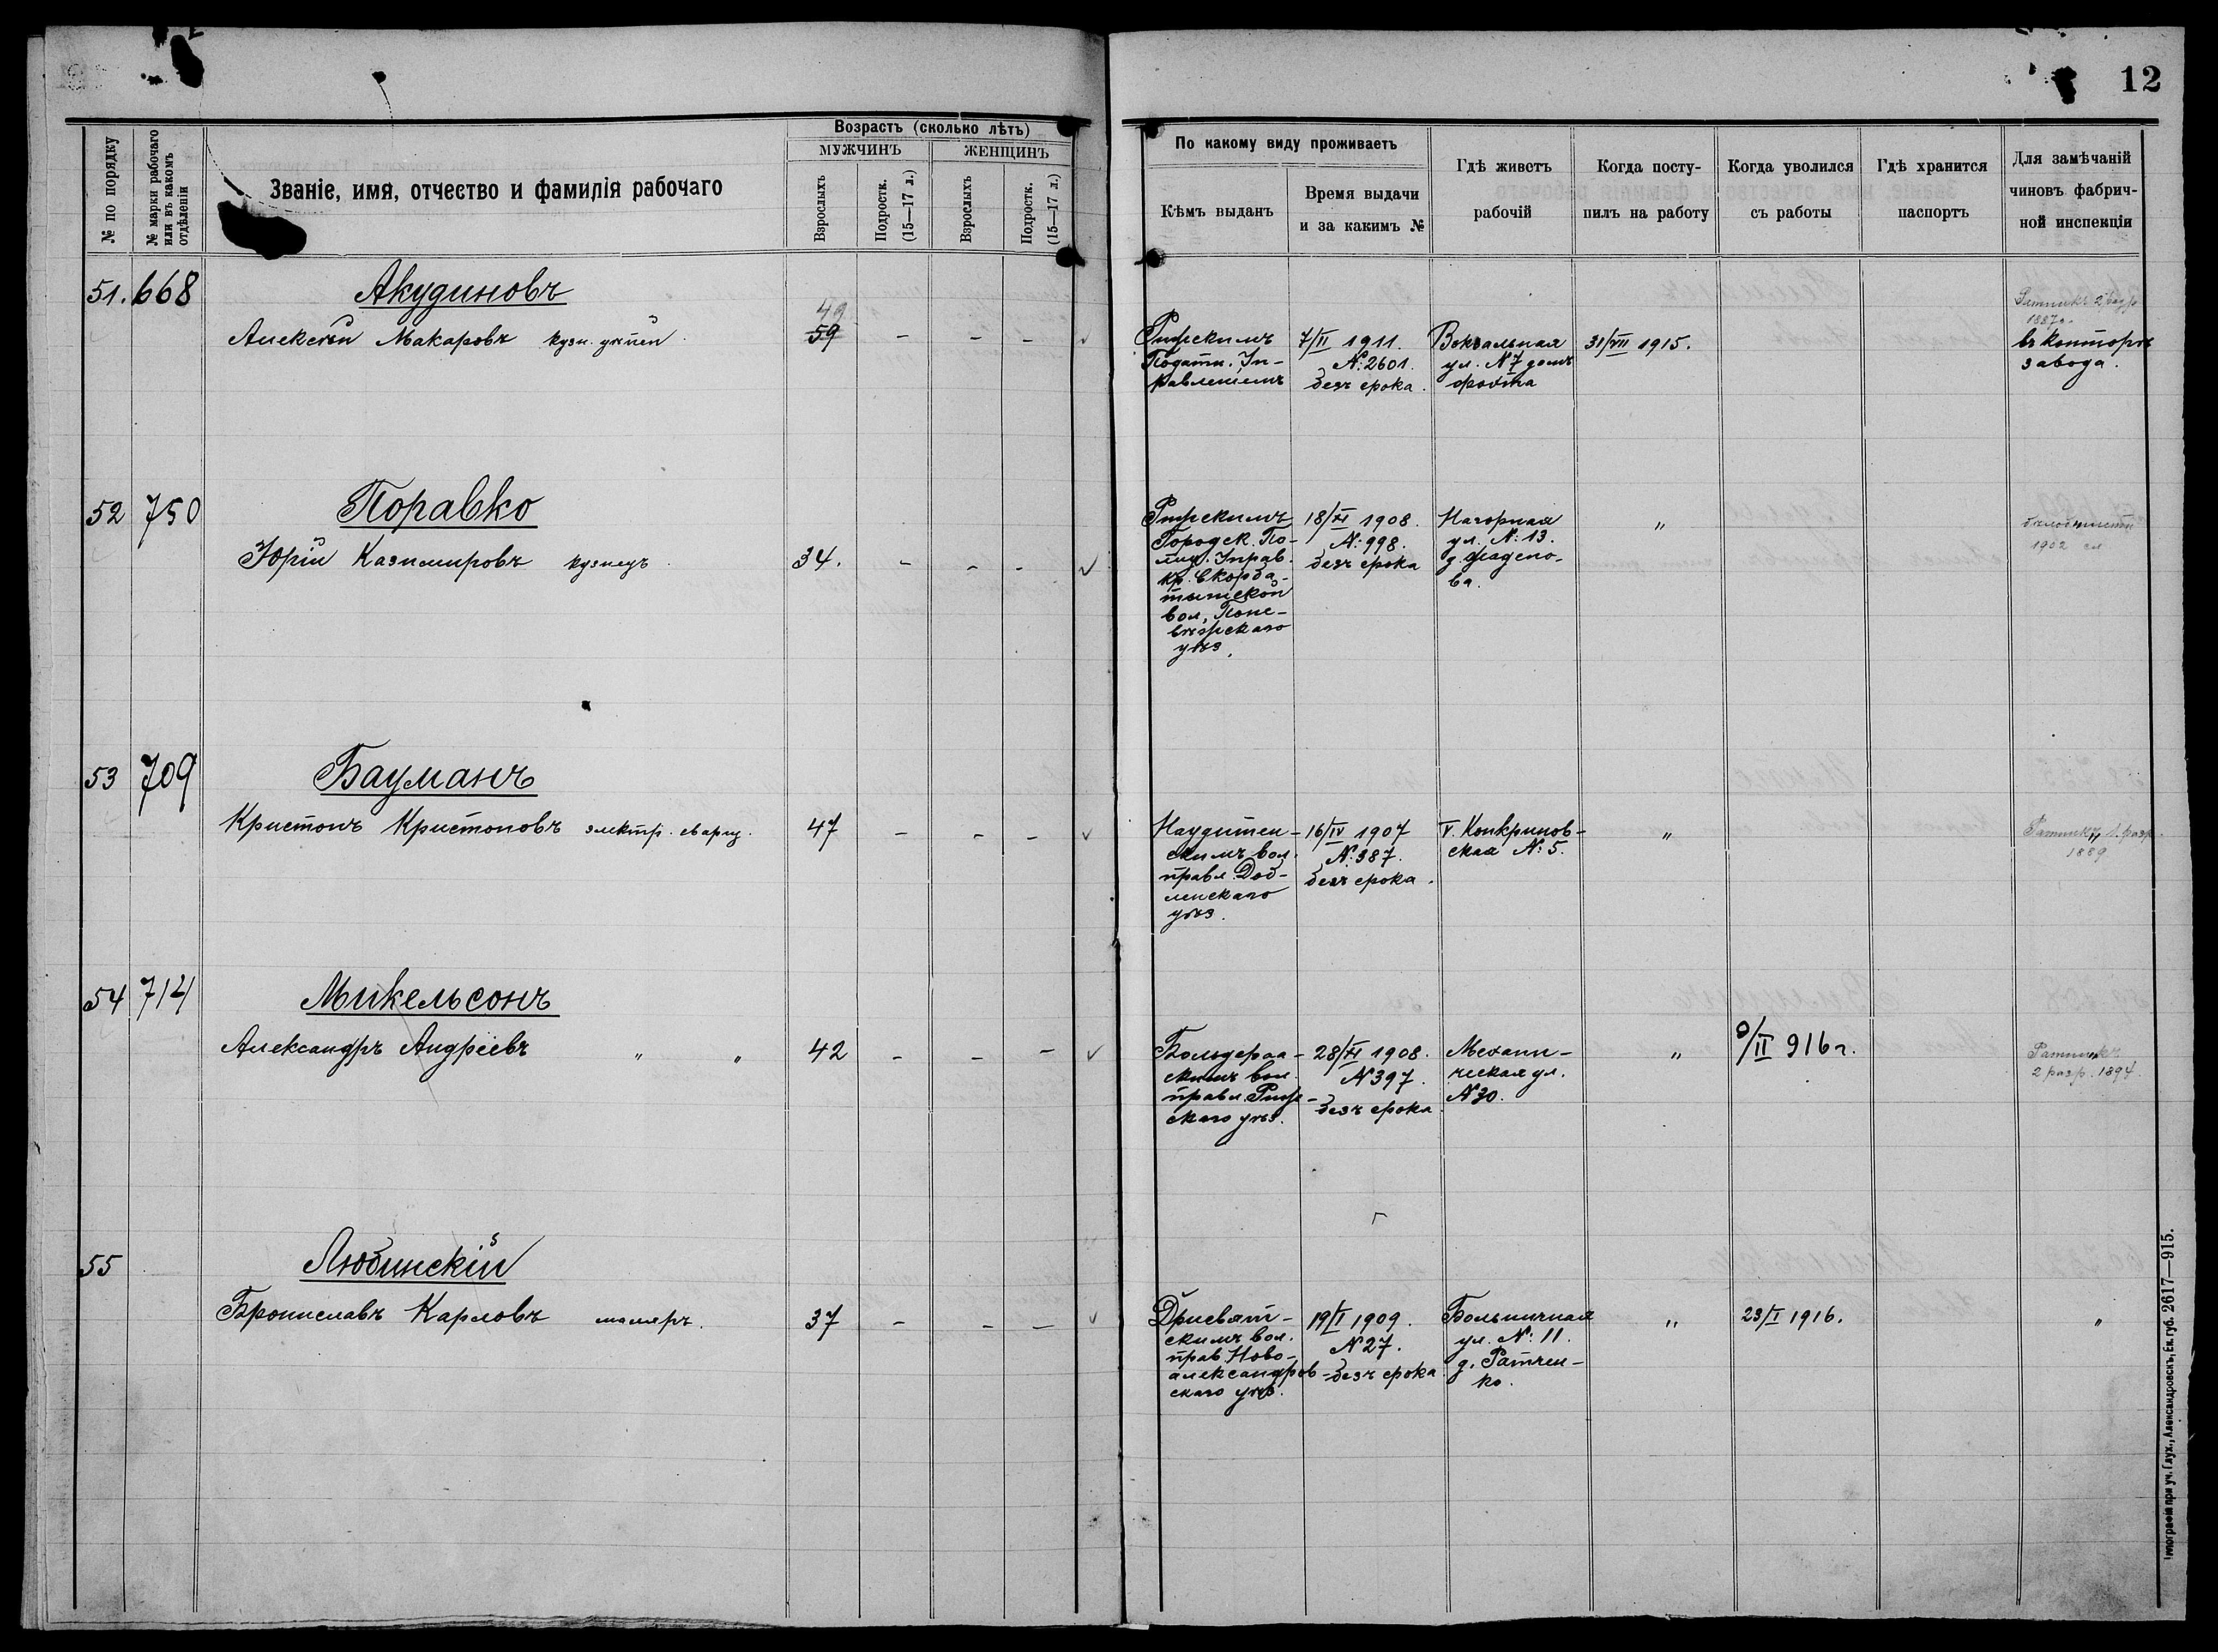 12
№ по порядку
№ марки рабочаго или въ какомъ отдѣленіи
Званіе, имя, отчество и фамилія рабочаго
Возрастъ (сколько лѣтъ)
МУЖЧИНЪ
ЖЕНЩИНЪ
Взрослыхъ
Подростк. (15—17 л.)
Взрослыхъ
Подростк. (15—17 л.)
По какому виду проживаетъ
Кѣмъ выданъ
Время выдачи
и за какимъ №
Гдѣ живетъ
рабочій
Когда посту-
пилъ на работу
Когда уволился
съ работы
Гдѣ хранится
паспортъ
Для замѣчаній
чиновъ фабрич-
ной инспекціи
51. 668 Акудиновъ
Алексѣй Макаровъ кузн.
49
59 — — —
Рижскимъ
Податн. Уп-
равленіемъ
7/II 1911.
№: 2601.
безъ срока.
Вокзальная
ул. № 7 домъ
31/VII 1915.
Ратникъ 2 разр
1887 г.
въ конторѣ
завода.
52 750 Поравко
Юрій Казимировъ кузнецъ
34. — — —
Рижскимъ
Городск. По-
лиц. Управ.
кр.
вол, Поне-
вѣжскаго
уѣз.
18/XI 1908.
№: 998.
безъ срока
Нагорная
ул. № 13.
"
1902
53 709 Бауманъ
Кристопъ Кристоповъ электр. сварщ.
47 — — —
Наудитен-
скимъ вол.
правл. Доб-
ленскаго
уѣз.
16/IV 1907
№: 387.
безъ срока.
V. Конкринов-
ская № 5.
"
Ратникъ 1. разр.
1889
54 714 Микельсонъ
Александръ Андреевъ " "
42 — — —
Больдераа-
скимъ вол.
правл. Риж-
скаго уѣз.
28/XI 1908.
№ 397.
безъ срока
Механи-
ческая ул.
№ 30.
"
9/II 916 г.
Ратникъ
2 разр. 1894.
55 Любинскій
Брониславъ Карловъ маляръ.
37 — — —
Дрисвят-
скимъ вол.
прав Ново-
александров-
скаго уѣз.
19/I 1909.
№ 27.
безъ срока
Больничная
ул. № 11.
д. Ратчен-
ко.
"
23/I 1916.
"
Типографія при уч. Глух., Александровскъ, Ек. губ. 2617—915.